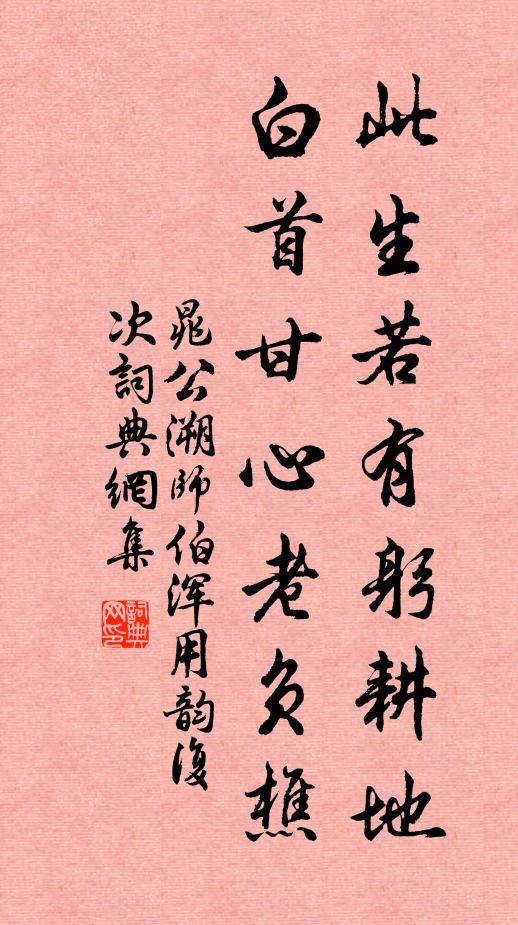 此生若有躬耕地
白首甘心老负樵
晁公溯师伯浑用韵復
次詞典網集
詞典
网印